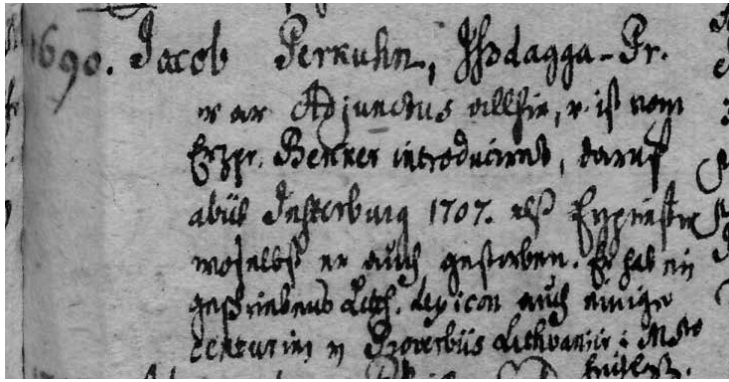 1690. Jacob Perkuhn, Ißdagga-Pr.
war Adjunctus allhir, v. ist vom
Erzpr. Benker introduciret, darauf
abiit Insterburg 1707. alß Erzpriester
woselbst er auch gestorben. Er hat ein
geschriebenes Litth. Lexicon auch einige
centurien Proverbiis Lithvanicis